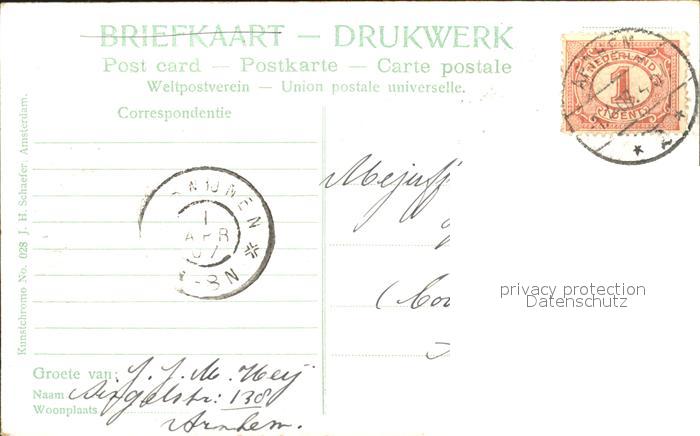 BRIEFKAART — DRUKWERK
Post card — Postkarte — Carte postale
Weltpostverein — Union postale universelle.
Correspondentie
NEDERLAND
1
1 CENT
1
APR
07
-8N
Mejuff
privacy protection
Datenschutz
Kunstchromo No. 028 J. H. Schaefer, Amsterdam.
Groete van: J. J. M. Heij
Naam Singelstr: 138
Woonplaats Arnhem.